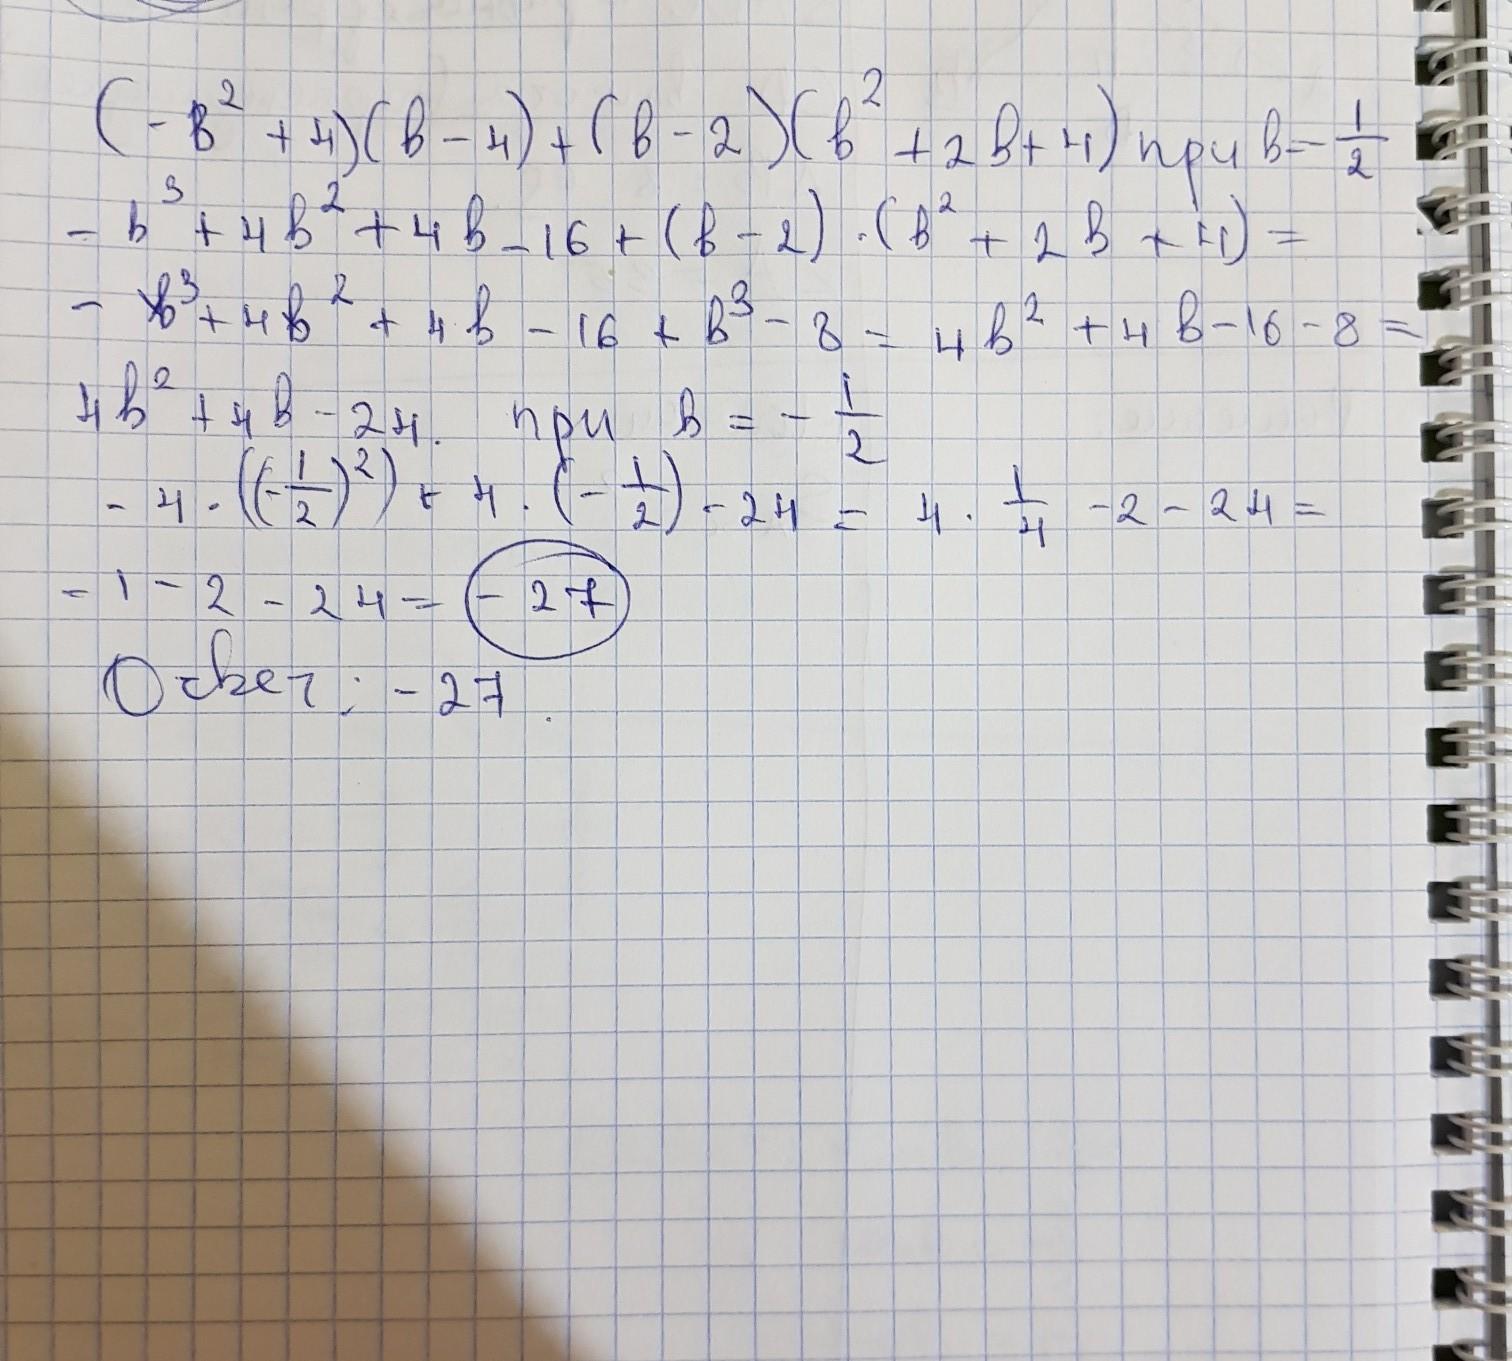 (-b² + 4)(b - 4) + (b - 2)(b² + 2b + 4) при b = -1/2
- b³ + 4b² + 4b - 16 + (b - 2) · (b² + 2b + 4) =
- b³ + 4b² + 4b - 16 + b³ - 8 = 4b² + 4b - 16 - 8 =
4b² + 4b - 24. при b = - 1/2
- 4 · ((-1/2)²) + 4 · (-1/2) - 24 = 4 · 1/4 - 2 - 24 =
- 1 - 2 - 24 = -27
Ответ: -27.